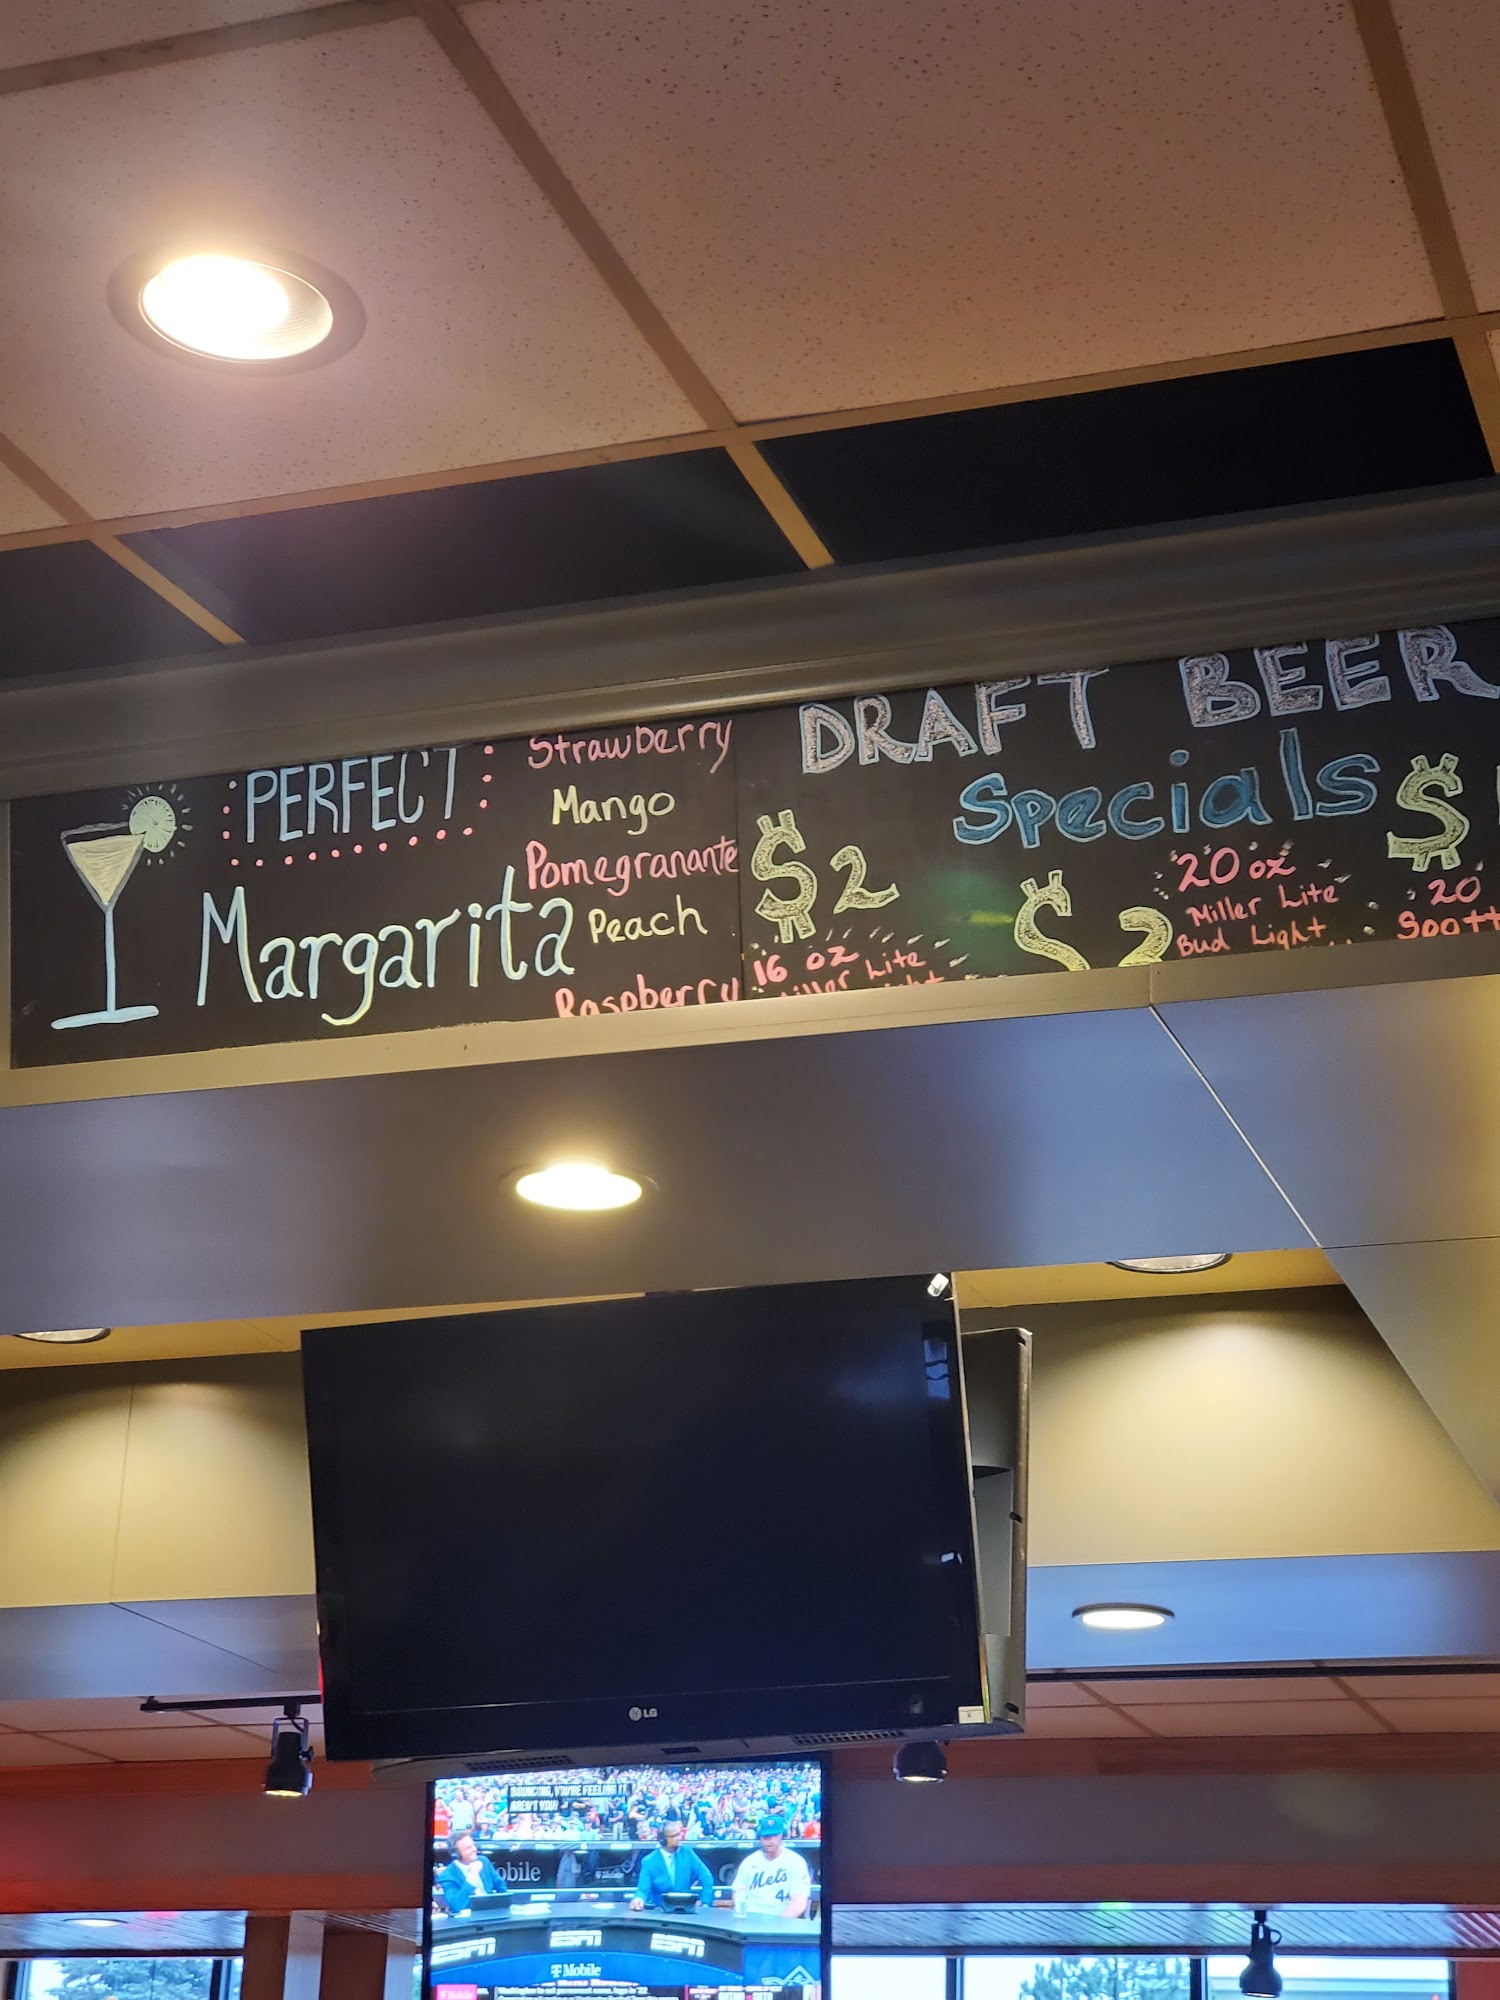 PERFECT
Margarita
Strawberry
Mango
Pomegranante
Peach
Raspberry
DRAFT BEER
Specials
$2
16 oz
Miller Lite
$2
20 oz
Miller Lite
Bud Light
$
20
LG
BOUNCING, YOU'RE FEELING IT,
AREN'T YOU?
Mobile
Mets
44
ESPN ESPN ESPN
T Mobile